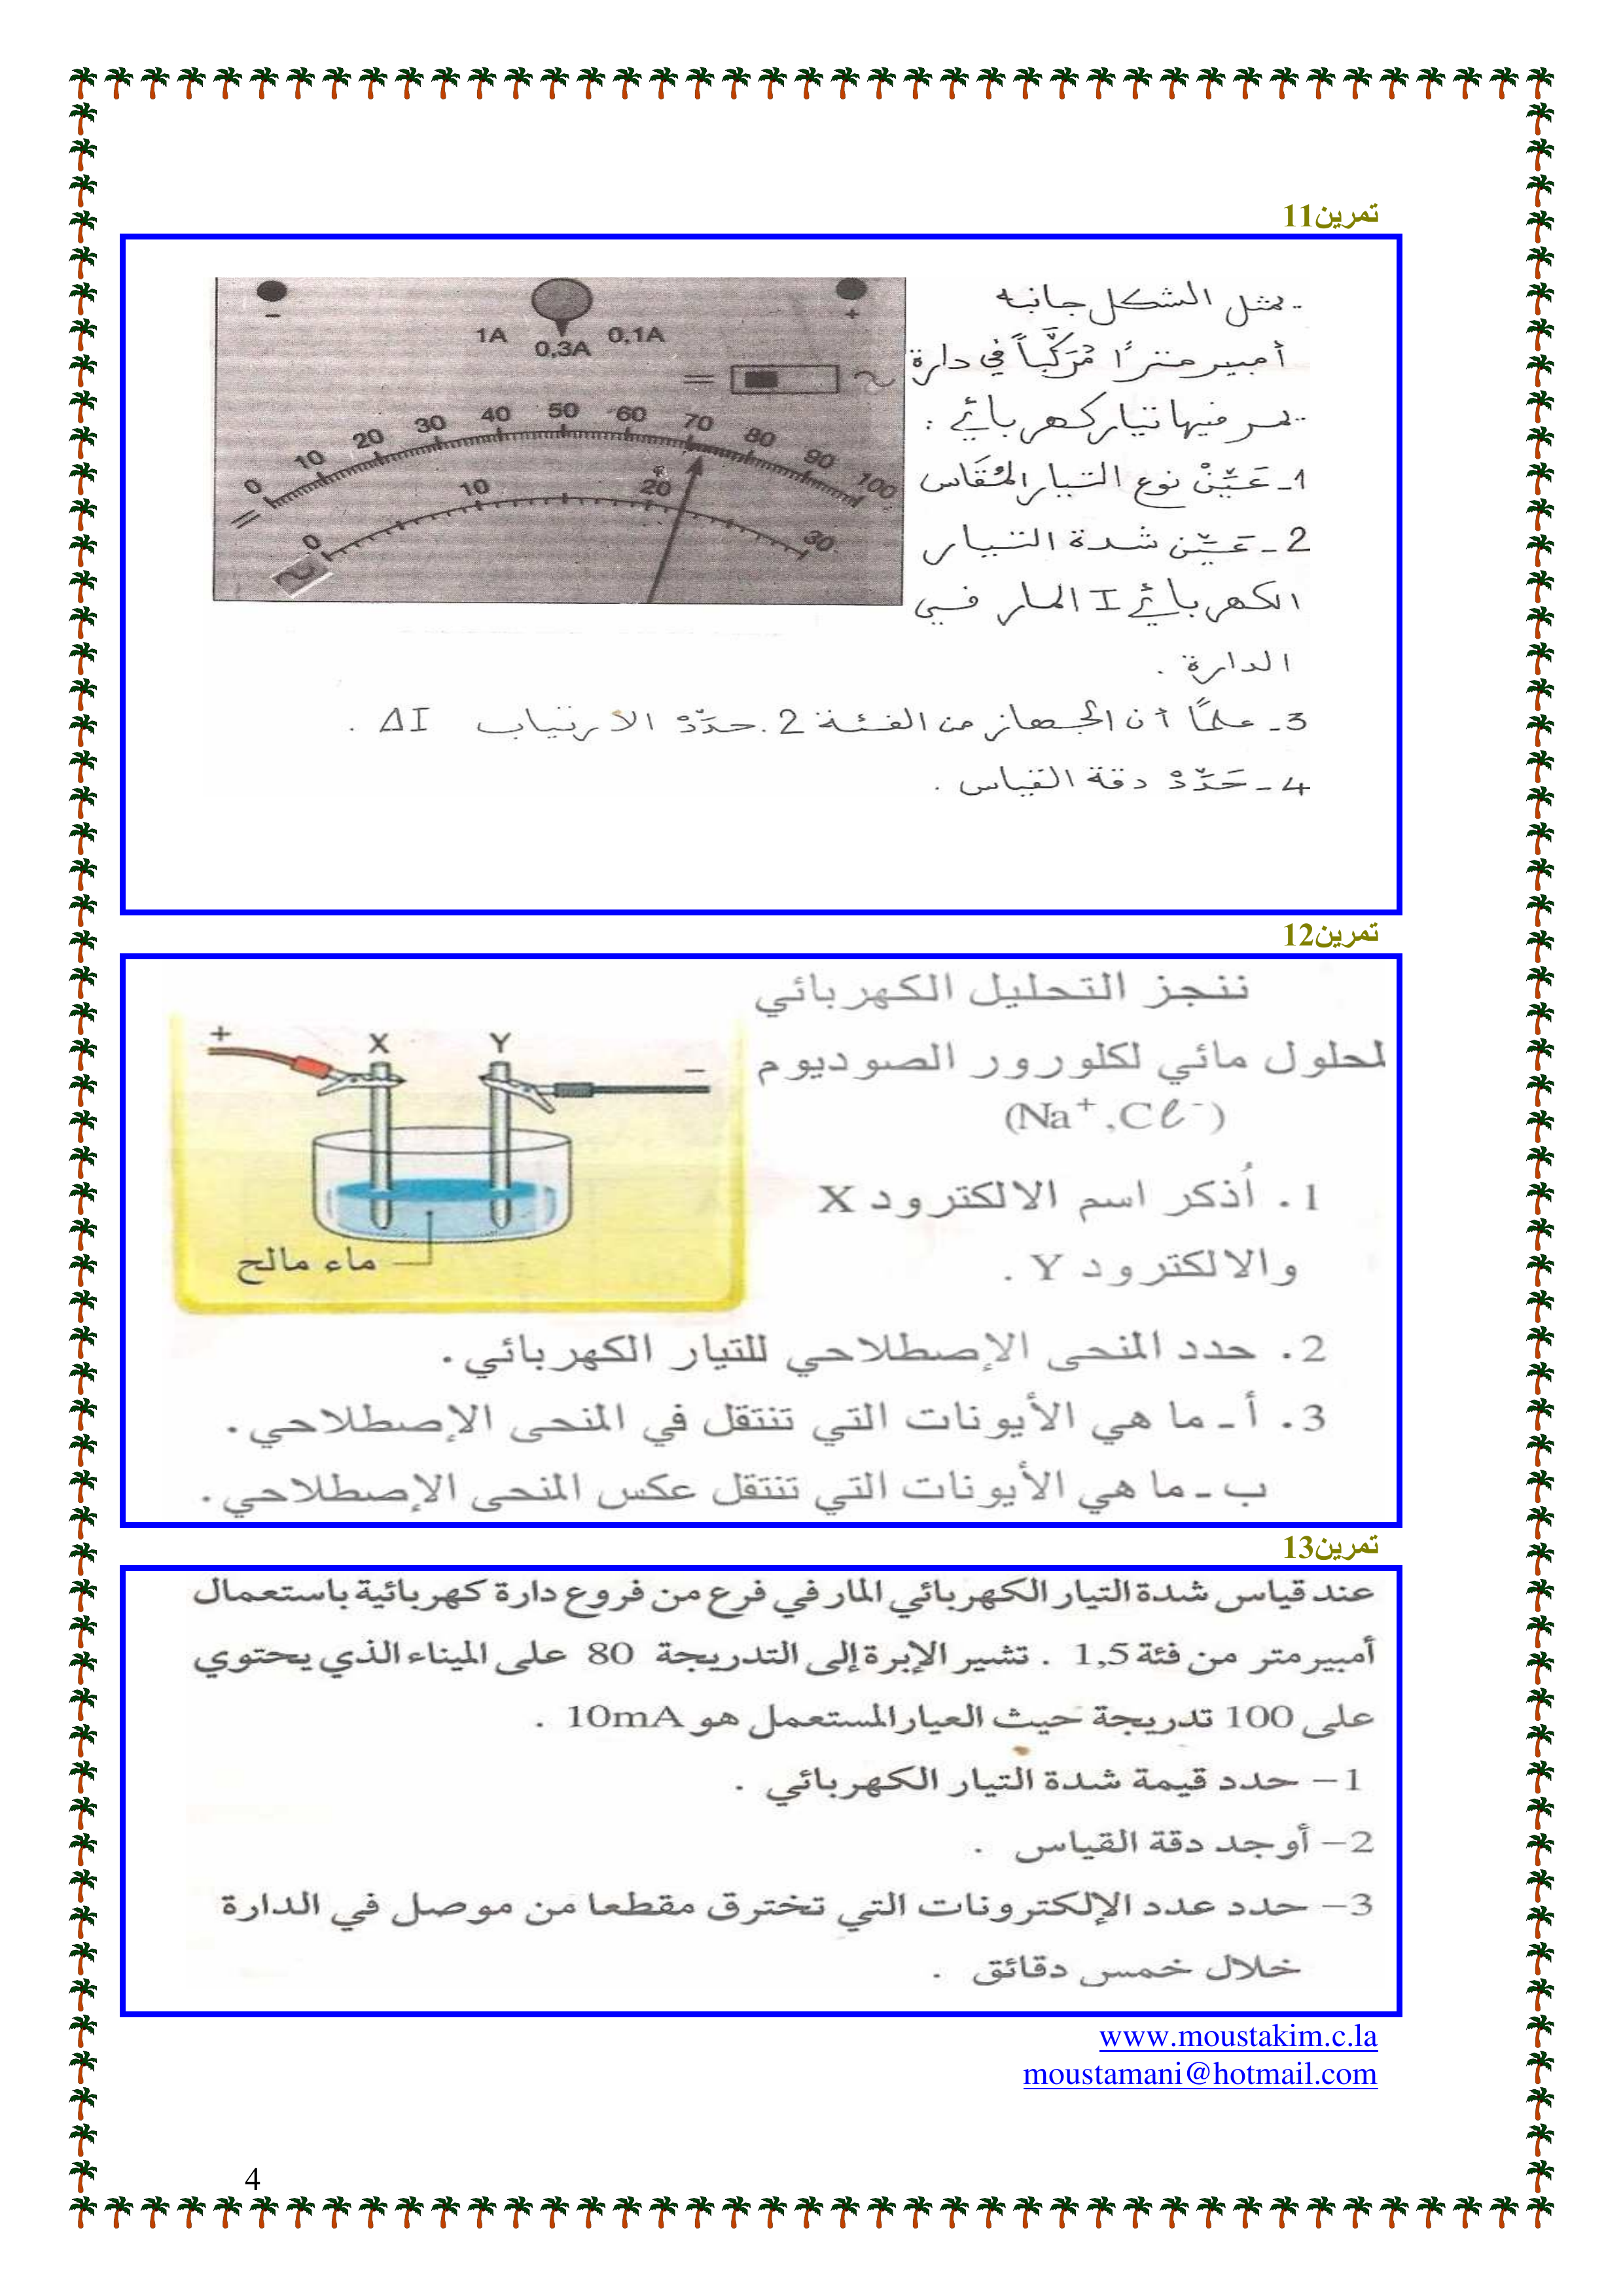 تمرين11
- يمثل الشكل جانبه
أمبيرمترًا مُرَكَّباً في دارة
يمر فيها تيار كهربائي :
1- عَيِّنْ نوع التيار المُقَاس
2- عَيِّن شدة التيار
الكهربائي I المار في
الدارة .
3- علمًا أن الجهاز من الفئة 2. حدِّدْ الارتياب ΔI .
4- حَدِّدْ دقة القياس .
- +
1A 0,3A 0,1A
= ~
0 10 20 30 40 50 60 70 80 90 100
=
0 10 20 30
~
تمرين12
ننجز التحليل الكهربائي
لمحلول مائي لكلورور الصوديوم
(Na⁺,Cℓ⁻)
1. أذكر اسم الالكترود X
والالكترود Y .
+ X Y -
ماء مالح
2. حدد المنحى الإصطلاحي للتيار الكهربائي.
3. أ- ما هي الأيونات التي تنتقل في المنحى الإصطلاحي.
ب- ما هي الأيونات التي تنتقل عكس المنحى الإصطلاحي.
تمرين13
عند قياس شدة التيار الكهربائي المار في فرع من فروع دارة كهربائية باستعمال
أمبيرمتر من فئة 1,5 . تشير الإبرة إلى التدريجة 80 على الميناء الذي يحتوي
على 100 تدريجة حيث العيار المستعمل هو 10mA .
1– حدد قيمة شدة التيار الكهربائي .
2– أوجد دقة القياس .
3– حدد عدد الإلكترونات التي تخترق مقطعا من موصل في الدارة
خلال خمس دقائق .
www.moustakim.c.la
moustamani@hotmail.com
4